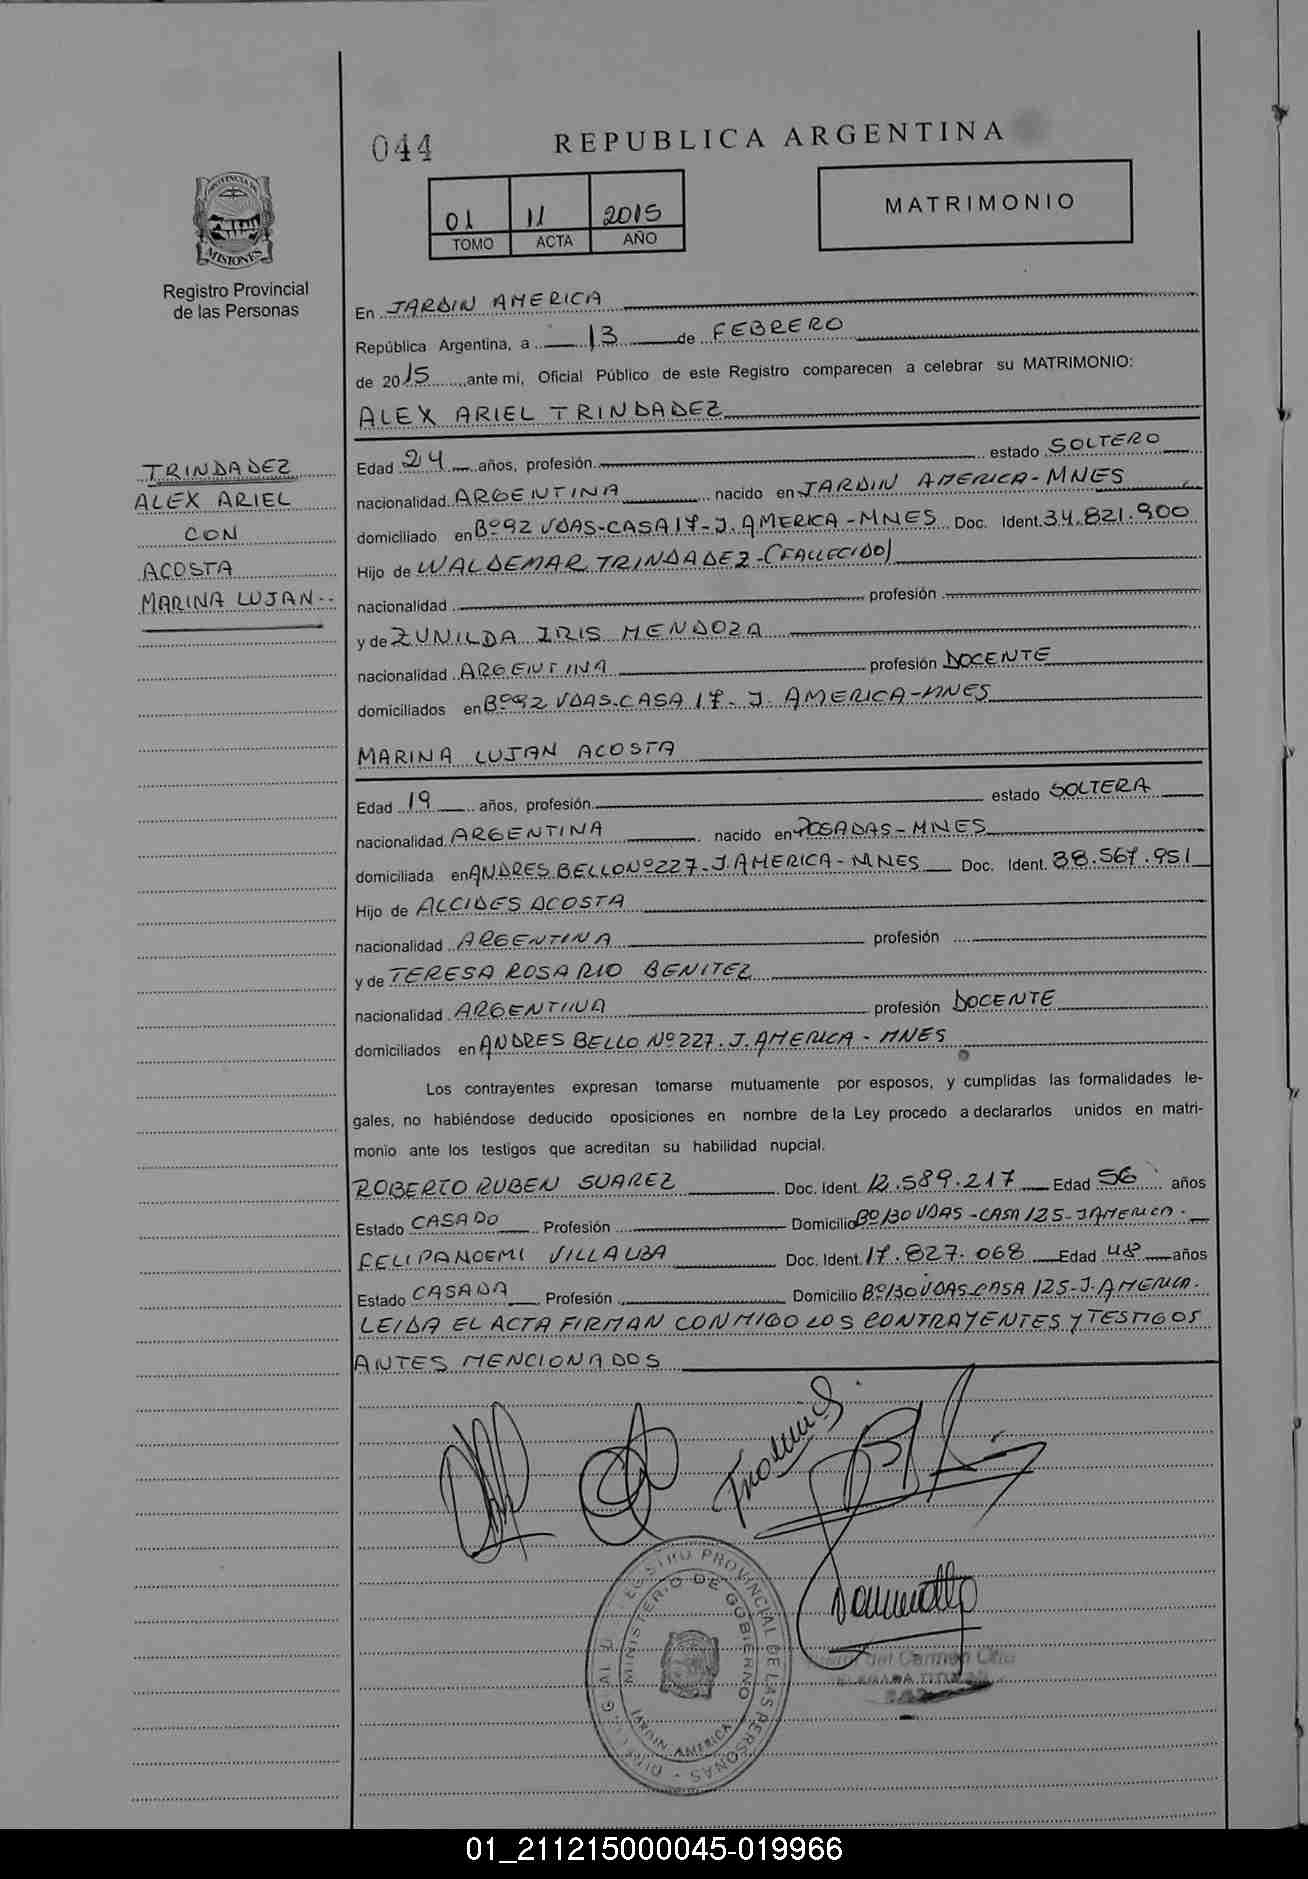 044
REPUBLICA ARGENTINA
01 11 2015
TOMO ACTA AÑO
MATRIMONIO
PROVINCIA DE
MISIONES
Registro Provincial
de las Personas
En JARDIN AMERICA
República Argentina, a 13 de FEBRERO
de 2015 ante mi, Oficial Público de este Registro comparecen a celebrar su MATRIMONIO:
ALEX ARIEL TRINDADEZ
TRINDADEZ
ALEX ARIEL
CON
ACOSTA
MARINA LUJAN
Edad 24 años, profesión estado SOLTERO
nacionalidad ARGENTINA nacido en JARDIN AMERICA-MNES
domiciliado en Bº92 VDAS-CASA 17-J. AMERICA-MNES Doc. Ident. 34.821.900
Hijo de WALDEMAR TRINDADEZ-(FALLECIDO)
nacionalidad profesión
y de ZUNILDA IRIS MENDOZA
nacionalidad ARGENTINA profesión DOCENTE
domiciliados en Bº92 VDAS-CASA 17-J. AMERICA-MNES
MARINA LUJAN ACOSTA
Edad 19 años, profesión estado SOLTERA
nacionalidad ARGENTINA nacido en POSADAS-MNES
domiciliada en ANDRES BELLO Nº227-J. AMERICA-MNES Doc. Ident. 38.567.951
Hijo de ALCIDES ACOSTA
nacionalidad ARGENTINA profesión
y de TERESA ROSARIO BENITEZ
nacionalidad ARGENTINA profesión DOCENTE
domiciliados en ANDRES BELLO Nº227-J. AMERICA-MNES
Los contrayentes expresan tomarse mutuamente por esposos, y cumplidas las formalidades le-
gales, no habiéndose deducido oposiciones en nombre de la Ley procedo a declararlos unidos en matri-
monio ante los testigos que acreditan su habilidad nupcial.
ROBERTO RUBEN SUAREZ Doc. Ident. 12.589.217 Edad 56 años
Estado CASADO Profesión Domicilio Bº130 VDAS-CASA 125-J AMERICA-
FELIPA NOEMI VILLALBA Doc. Ident. 17.827.068 Edad 48 años
Estado CASADA Profesión Domicilio Bº130 VDAS-CASA 125-J. AMERICA.
LEIDA EL ACTA FIRMAN CONMIGO LOS CONTRAYENTES Y TESTIGOS
ANTES MENCIONADOS
REGISTRO PROVINCIAL DE LAS PERSONAS
MINISTERIO DE GOBIERNO
JARDIN AMERICA
del Carmen
01_211215000045-019966